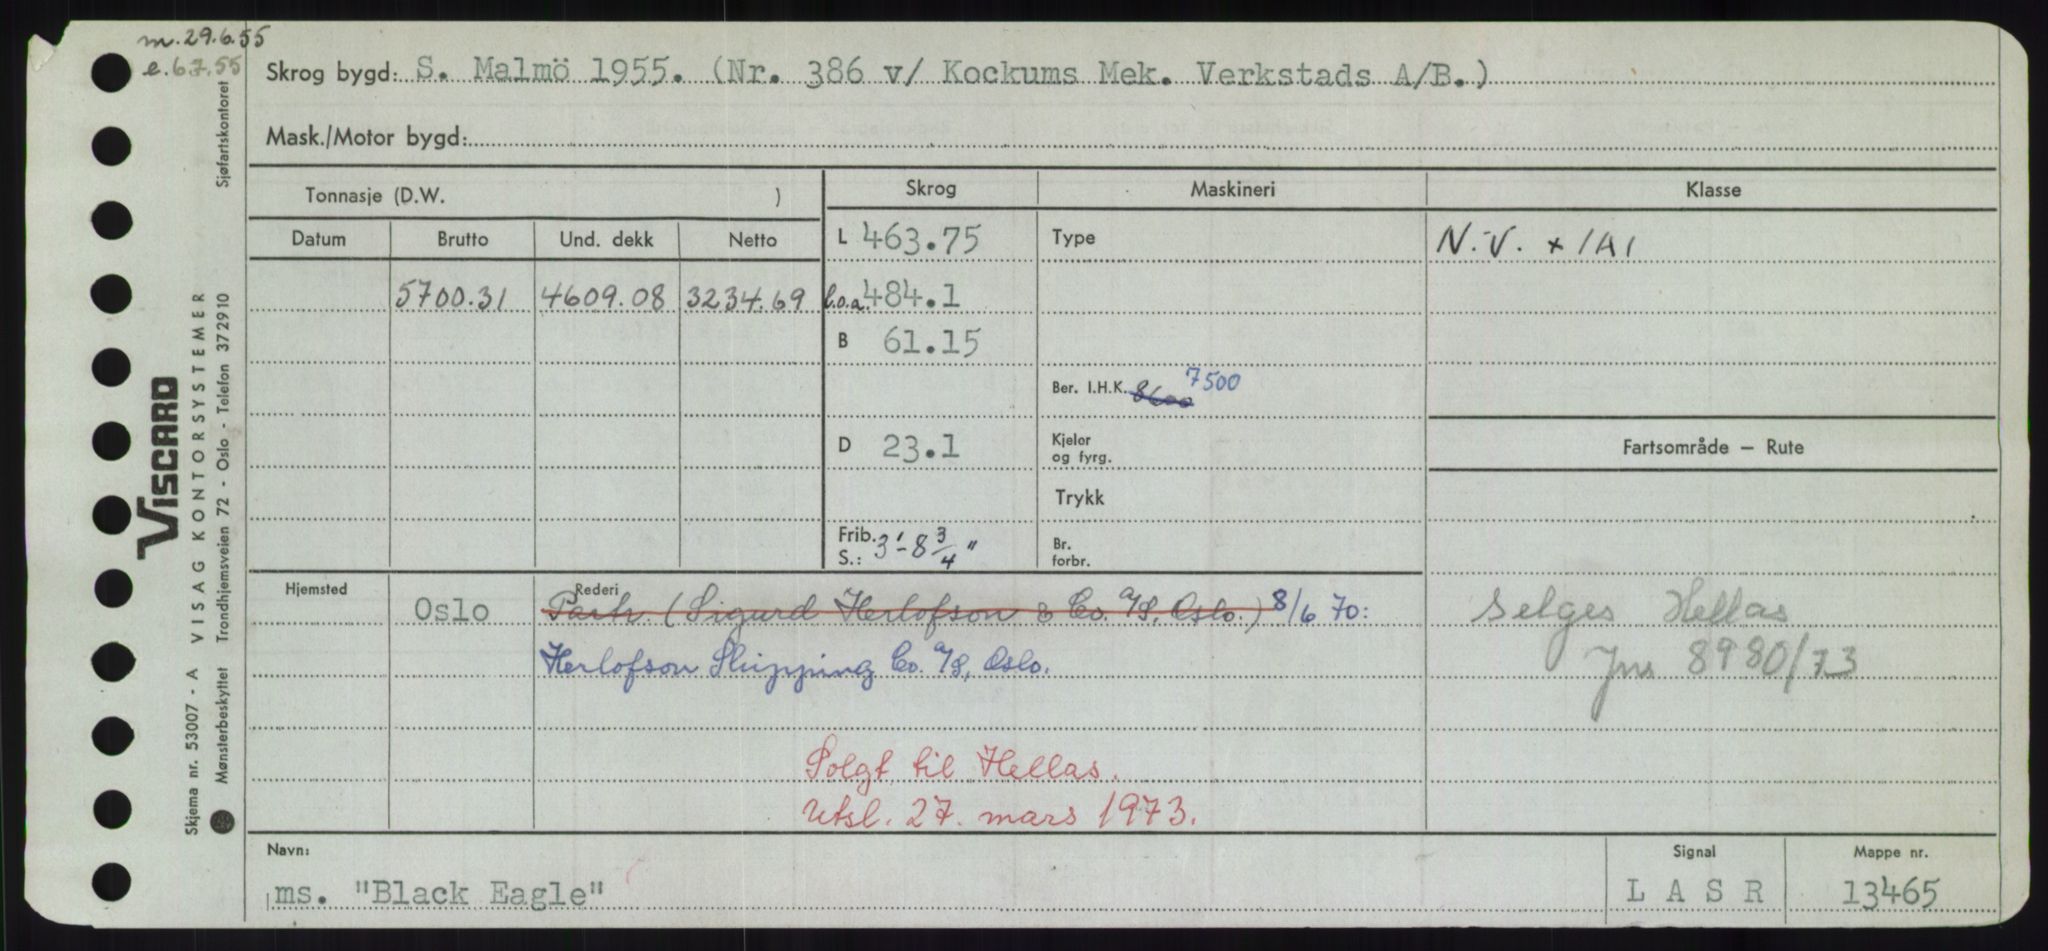 m. 29.6.55
e. 6.7.55
Skrog bygd: S. Malmö 1955. (Nr. 386 v/ Kockums Mek. Verkstads A/B.)
Mask./Motor bygd:
Tonnasje (D.W. )
Skrog Maskineri Klasse
Datum Brutto Und. dekk Netto
L 463.75 Type N.V. + 1A1
5700.31 4609.08 3234.69 l.o.a. 484.1
B 61.15
Ber. I.H.K. 8600 7500
D 23.1 Kjeler og fyrg. Fartsområde — Rute
Trykk
Frib. S.: 3'-8 3/4" Br. forbr.
Hjemsted Rederi
Oslo Partr. (Sigurd Herlofson & Co. A/S, Oslo.) 8/6 70:
Herlofson Shipping Co. A/S, Oslo.
selges Hellas
Jnr 8980/73
Solgt til Hellas.
Utsl. 27. mars 1973.
Navn: Signal Mappe nr.
ms. "Black Eagle" L A S R 13465
VISCARD
Skjema nr. 53007 - A VISAG KONTORSYSTEMER
Mønsterbeskyttet Trondhjemsveien 72 - Oslo - Telefon 372910 Sjøfartskontoret